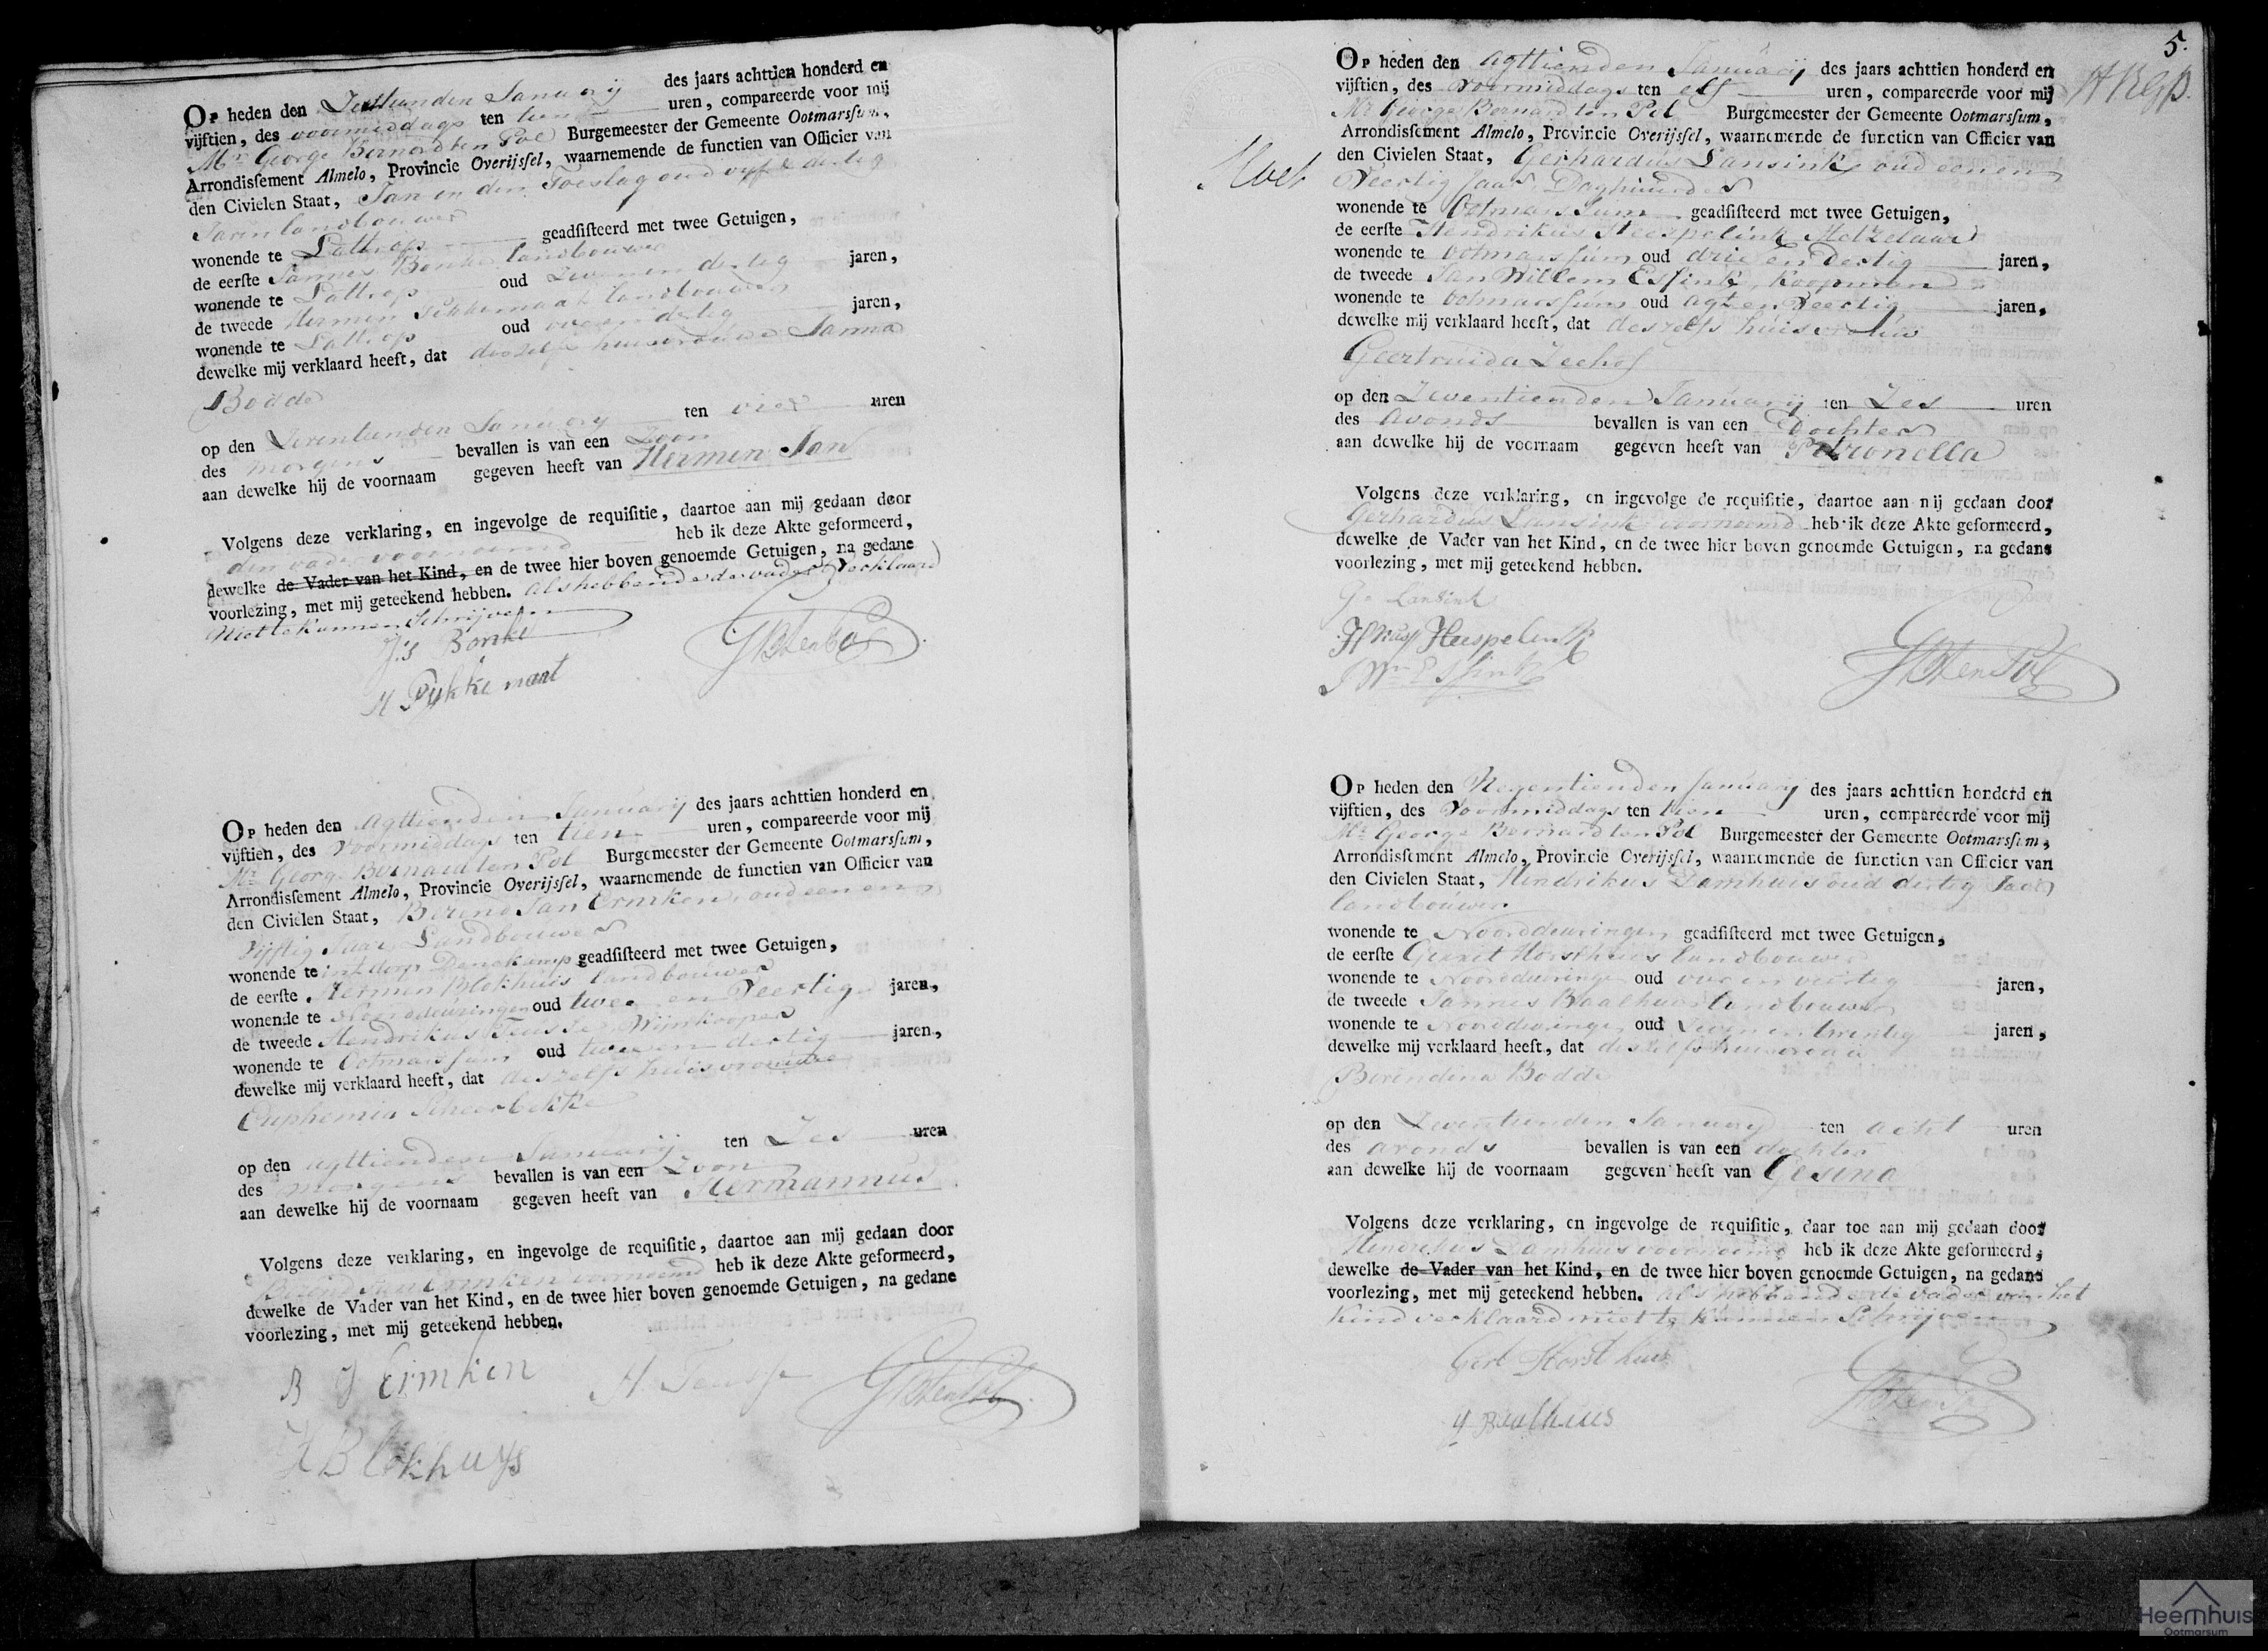 Op heden den Januarij des jaars achttien honderd en
vijftien, des voormiddags ten uren, compareerde voor mij
Mr. George Bernard ten Pol Burgemeester der Gemeente Ootmarsſum,
Arrondisſement Almelo, Provincie Overijsſel, waarnemende de functien van Officier van
den Civielen Staat, Jan in den Toeslag oud vyf & dertig
Jaren landbouwer
wonende te Lattrop geadſiſteerd met twee Getuigen,
de eerſte Jannes Bonke landbouwer
wonende te Lattrop oud Zeven en dertig jaren,
de tweede Hermen landbouwer
wonende te Lattrop oud dertig jaren,
dewelke mij verklaard heeft, dat deszelfs huisvrouwe Janna
Bodde
op den Zeventienden January ten vier uren
des morgens bevallen is van een Zoon
aan dewelke hij de voornaam gegeven heeft van Hermen Jan
Volgens deze verklaring, en ingevolge de requiſitie, daartoe aan mij gedaan door
den vader voornoemd heb ik deze Akte geformeerd,
dewelke de Vader van het Kind, en de twee hier boven genoemde Getuigen, na gedane
voorlezing, met mij geteekend hebben. als hebbende de vader verklaard
Niet te kunnen Schrijven
J:s Bonke
GB ten Pol
H Pykkemaat
Op heden den agttienden Januarij des jaars achttien honderd en
vijftien, des Voormiddags ten tien uren, compareerde voor mij
Mr. George Bernard ten Pol Burgemeester der Gemeente Ootmarsſum,
Arrondisſement Almelo, Provincie Overijsſel, waarnemende de functien van Officier van
den Civielen Staat, Berend Jan Ermken, oud een en
Vijftig Jaar, Landbouwer
wonende te int dorp Denekamp geadſiſteerd met twee Getuigen,
de eerſte Hermen Blokhuis landbouwer
wonende te Noorddeuringen oud twee en Veertig jaren,
de tweede Hendrikus Teusse, Wijnkooper
wonende te Ootmarssum oud twee en dertig jaren,
dewelke mij verklaard heeft, dat deszelfs huisvrouwe
Euphemia Scheerbekke
op den agttienden Januarij ten Zes uren
des morgens bevallen is van een Zoon
aan dewelke hij de voornaam gegeven heeft van Hermannus
Volgens deze verklaring, en ingevolge de requiſitie, daartoe aan mij gedaan door
Berend Jan Ermken voornoemd heb ik deze Akte geformeerd,
dewelke de Vader van het Kind, en de twee hier boven genoemde Getuigen, na gedane
voorlezing, met mij geteekend hebben.
B J Ermken H Teusse GB ten Pol
H Blokhuys
5.
Op heden den agttienden Januarij des jaars achttien honderd en
vijftien, des Voormiddags ten elf uren, compareerde voor mij
Mr George Bernard ten Pol Burgemeester der Gemeente Ootmarsſum,
Arrondisſement Almelo, Provincie Overijsſel, waarnemende de functien van Officier van
den Civielen Staat, Gerhardus Lansink, oud een en
Veertig Jaar, Daghuurder
wonende te Ootmarssum geadſiſteerd met twee Getuigen,
de eerſte Hendrikus Heespelink Metzelaar
wonende te Ootmarssum oud drie en dertig jaren,
de tweede Jan Willem Essink, Koopman
wonende te Ootmarssum oud agt en Veertig jaren,
dewelke mij verklaard heeft, dat deszelfs huisvrouw
Geertruida Zeehof
op den Zeventienden Januarij ten Zes uren
des avonds bevallen is van een Dochter
aan dewelke hij de voornaam gegeven heeft van Petronella
Volgens deze verklaring, en ingevolge de requiſitie, daartoe aan mij gedaan door
Gerhardus Lansink voornoemd heb ik deze Akte geformeerd,
dewelke de Vader van het Kind, en de twee hier boven genoemde Getuigen, na gedane
voorlezing, met mij geteekend hebben.
G Lansink
Heespelink
JWm Essink GB ten Pol
Op heden den Negentienden January des jaars achttien honderd en
vijftien, des Voormiddags ten tien uren, compareerde voor mij
Mr George Bernard ten Pol Burgemeester der Gemeente Ootmarsſum,
Arrondisſement Almelo, Provincie Overijsſel, waarnemende de functien van Officier van
den Civielen Staat, Hendrikus Damhuis oud dertig Jaar
landbouwer
wonende te Noorddeuringen geadſiſteerd met twee Getuigen,
de eerſte Gerrit Horsthuis landbouwer
wonende te Noorddeuringe oud veertig jaren,
de tweede Jannes Baalhuis landbouwer
wonende te Noorddeuringe oud Zeven en twintig jaren,
dewelke mij verklaard heeft, dat deszelfs huisvrouw
Berendina Bodde
op den Zeventienden January ten acht uren
des avonds bevallen is van een dochter
aan dewelke hij de voornaam gegeven heeft van Gesina
Volgens deze verklaring, en ingevolge de requiſitie, daar toe aan mij gedaan door
Hendrikus Damhuis voornoemd heb ik deze Akte geformeerd,
dewelke de Vader van het Kind, en de twee hier boven genoemde Getuigen, na gedane
voorlezing, met mij geteekend hebben. als hebbende de vader van het
Kind verklaard niet te kunnen Schrijven
Gert Horsthuis
GB ten Pol
Baalhuis
Heemhuis
Ootmarsum